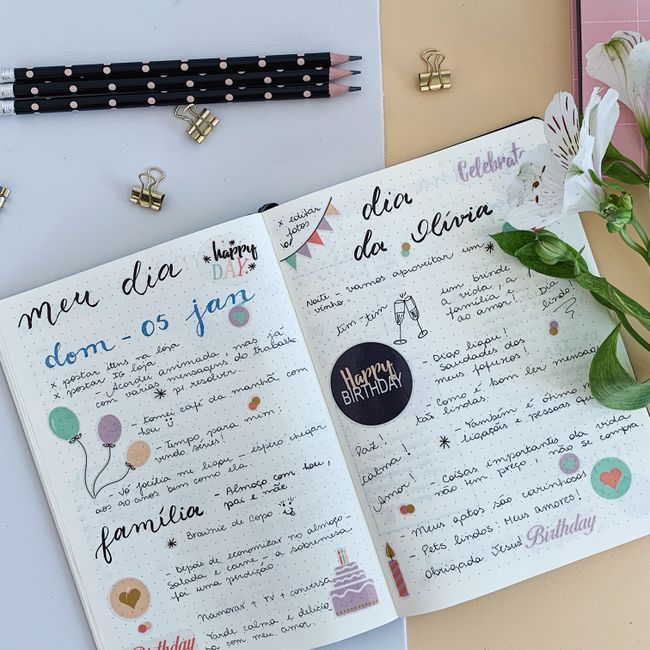 meu dia
happy
DAY
dom - 05 jan
x postar itens na loja
x postar IG loja
- Acordei animada, mas já
com várias mensagens do trabalho
* p/ resolver
- tomei café da manhã com
Lou
- Tempo, para mim:
vendo séries!
- Vó Jacília me ligou - espero chegar
aos 90 anos bem como ela.
família
- Almoço com Lou,
pai e mãe.
* Brownie de Copo
- depois de economizar no almoço -
salada e carne - a sobremesa
foi uma perdição.
Namorar + TV + conversa
Tarde calma e delícia
com meu amor.
Birthday
x editar
fotos
Celebrat
dia
da Olívia
Noite: vamos aproveitar um
vinho
tim-tim
um brinde
a vida, a
família e
ao amor!
Dia
lindo!
Happy
BIRTHDAY
- Diogo ligou!
Saudades dos
meus fofuxos!
* como é bom ler mensagens
tão lindas.
- Também é ótimo
ligações e pessoas
Paz!
calma!
Amor!
- Coisas importantes da vida
não tem preço, não se compra.
- Meus gatos são carinhosos
- Pets lindos! Meus amores!
Obrigada Jesus
Birthday